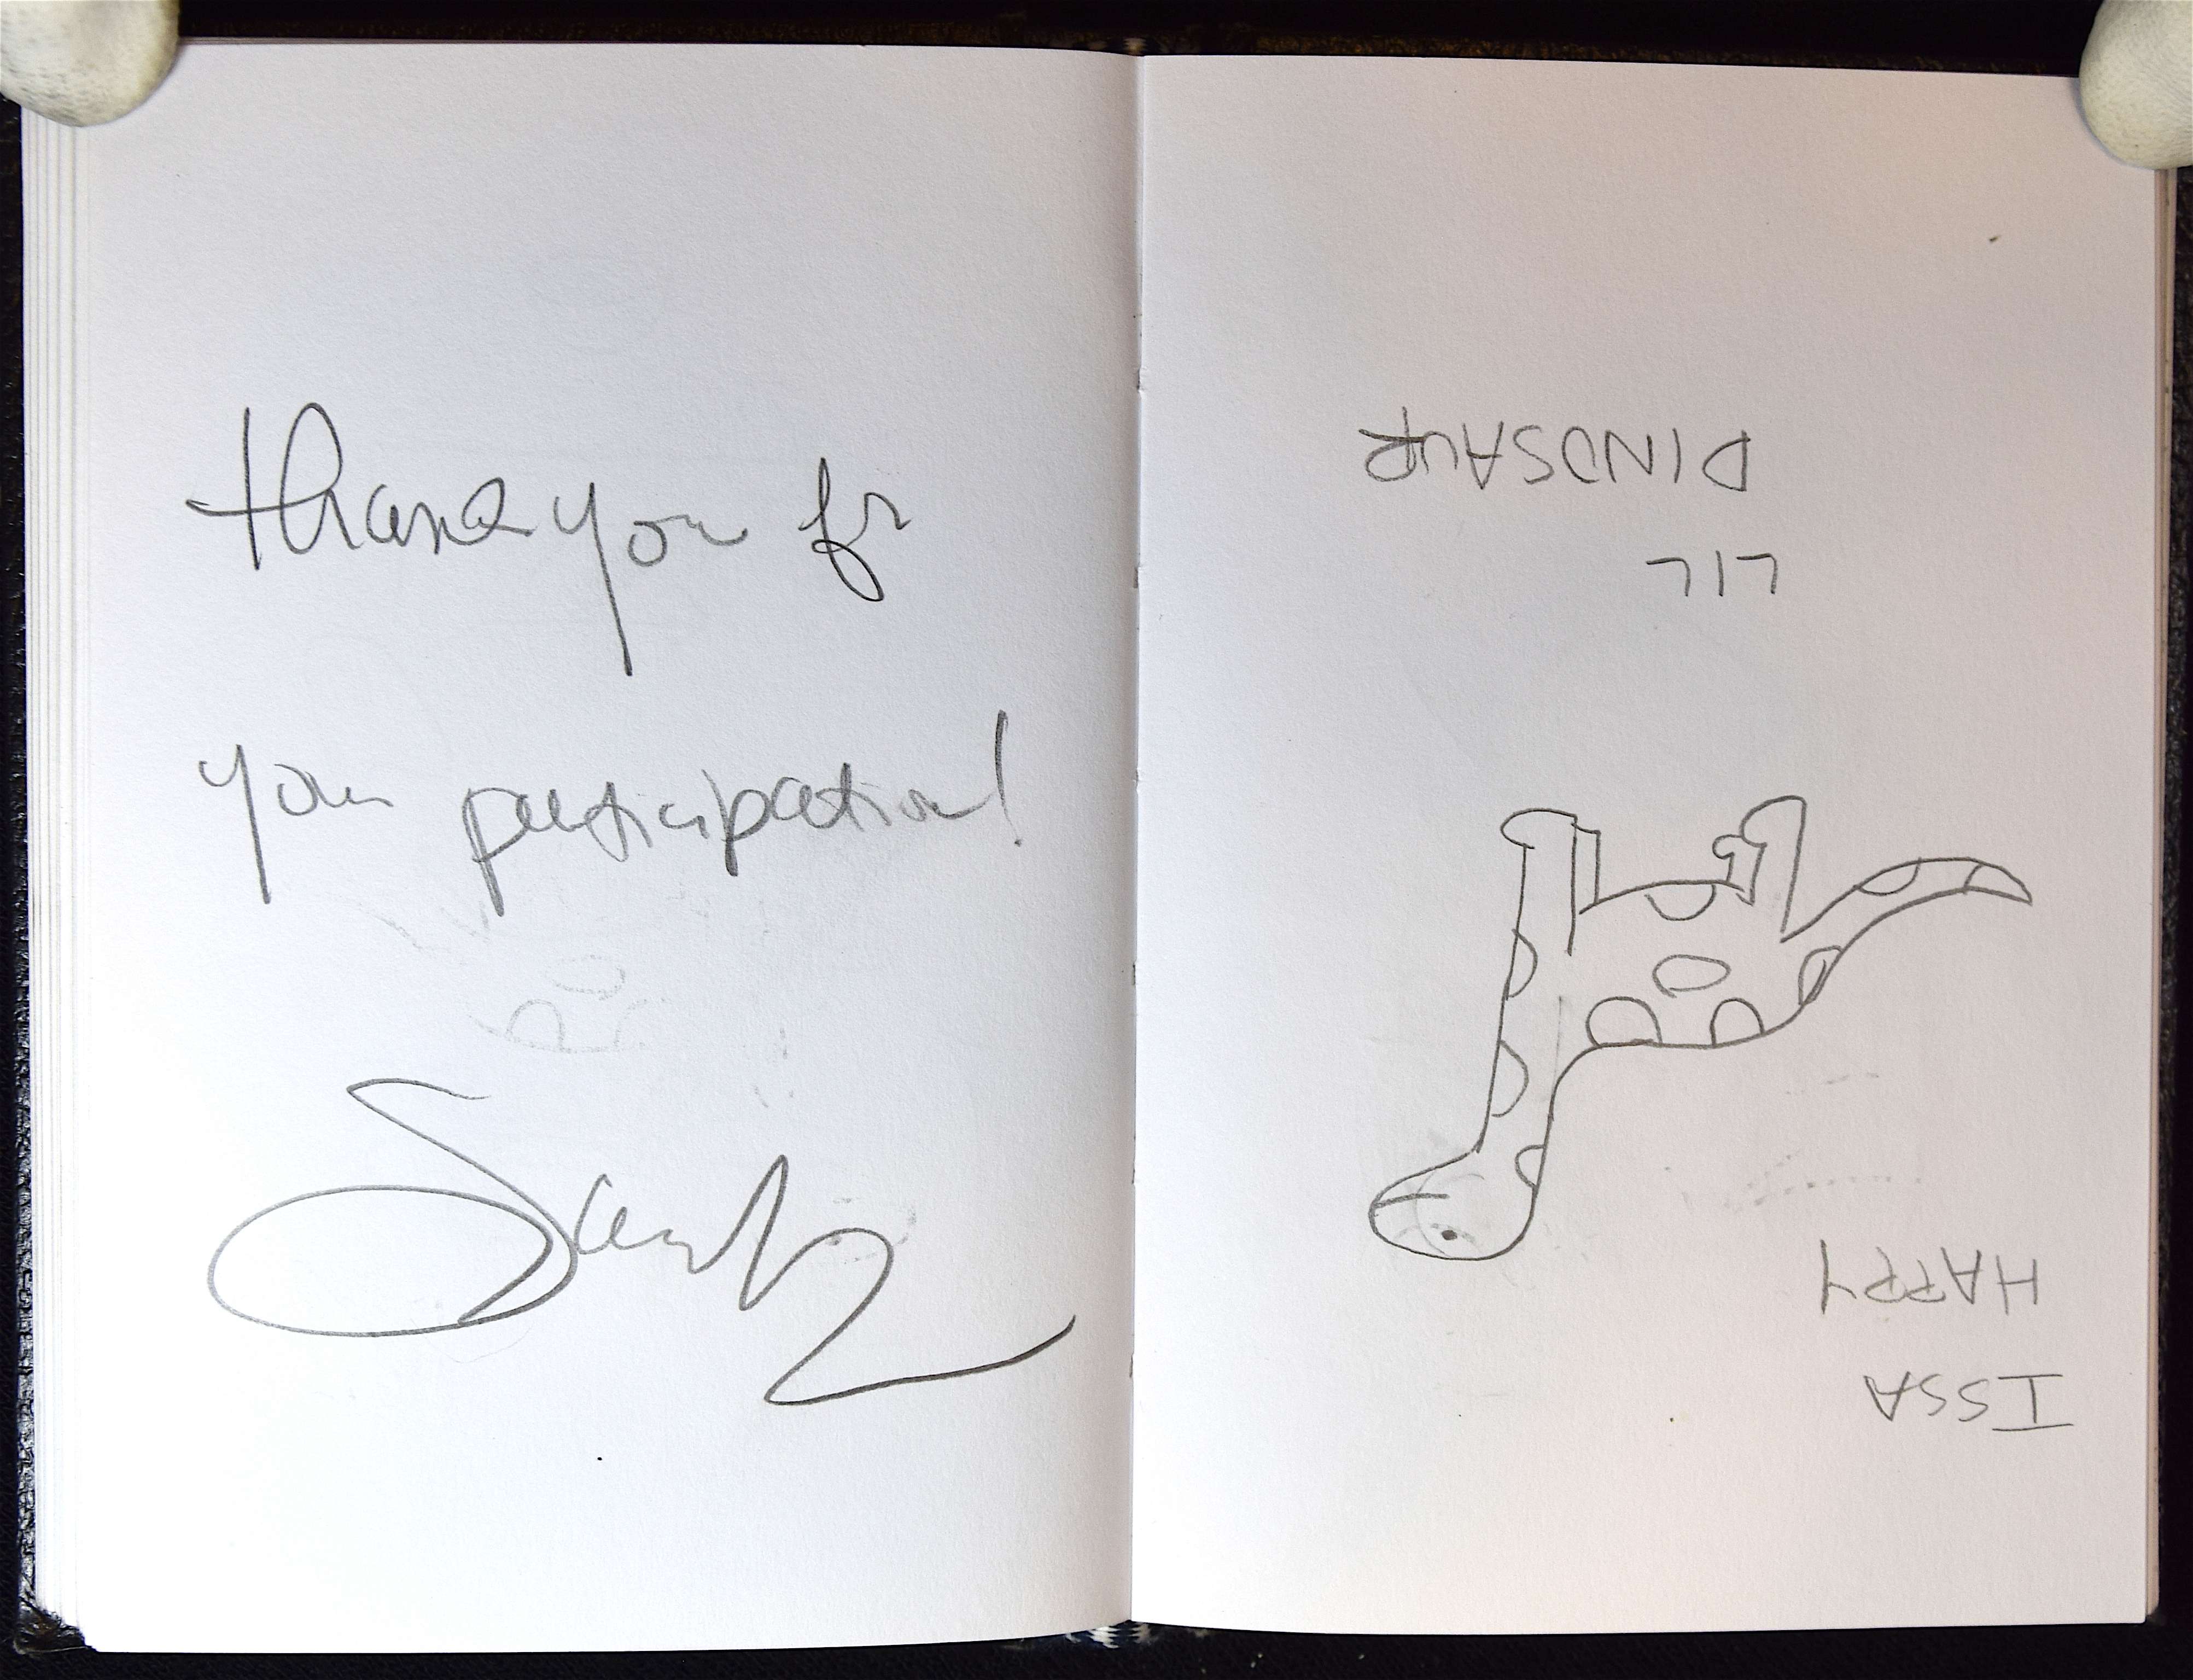 thank you for
your participation!
Sandy
ISSA
HAPPY
LIL
DINOSAUR